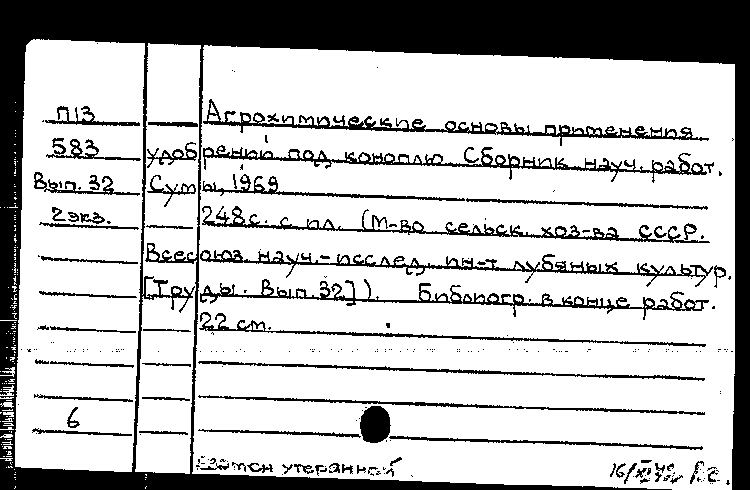 П13 Агрохимические основы применения
583 удобрений под коноплю. Сборник науч. работ.
Вып. 32 Сумы, 1969
2экз. 248с. с пл. (М-во сельск. хоз-ва СССР.
Всесоюз. науч.-исслед. ин-т лубяных культур.
[Труды. Вып. 32]). Библиогр. в конце работ.
22 см.
6
Взамен утерянной 16/XI